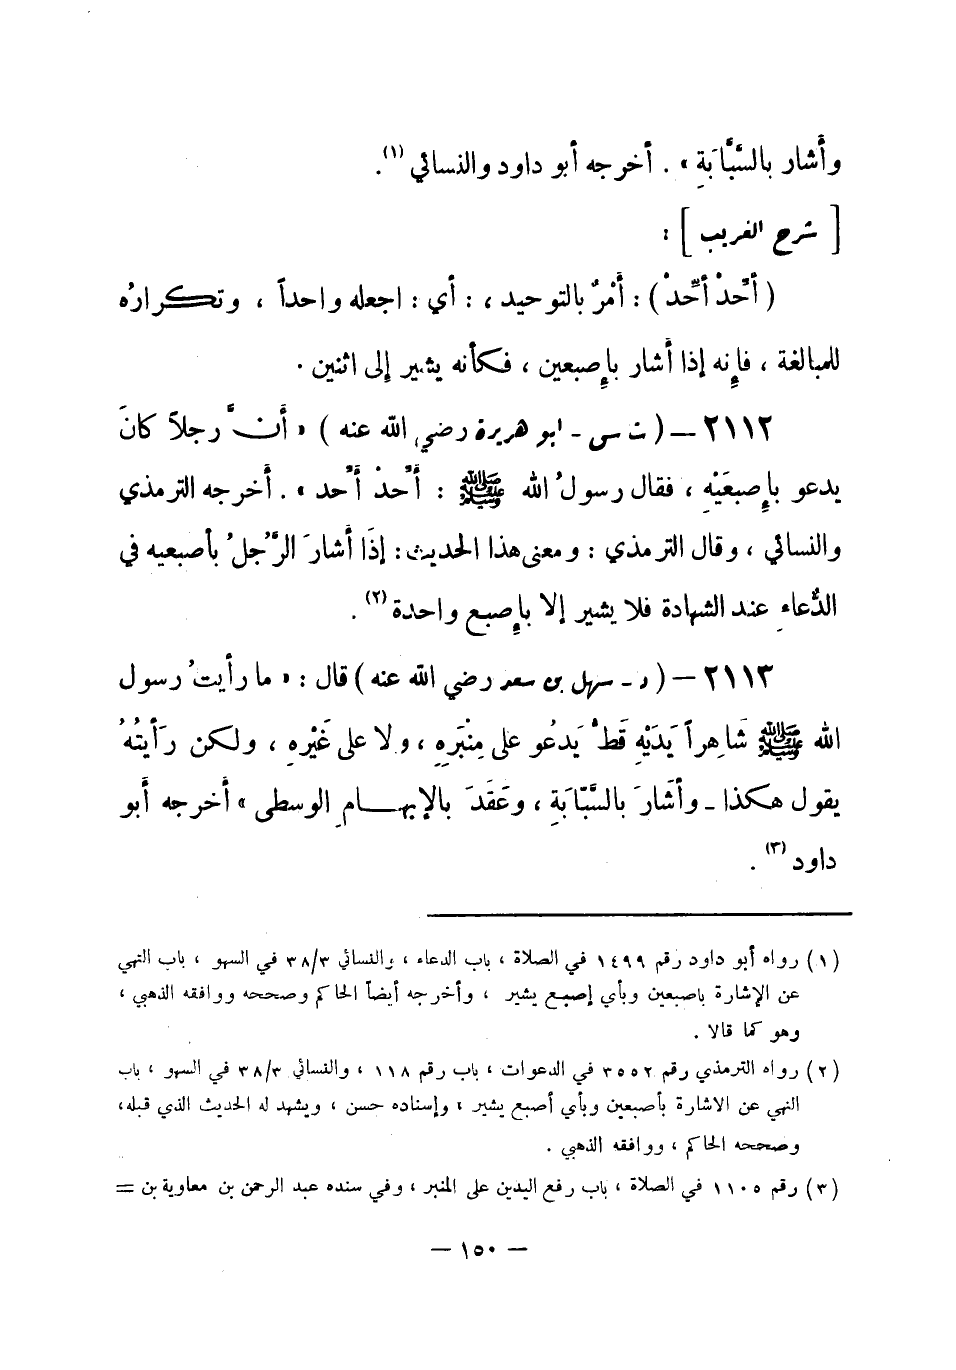 وأَشار بالسَّبَّابَةِ » . أخرجه أبو داود والنسائي (١).
[ شرح الغريب ] :
( أَحِّدْ أَحِّدْ ) : أَمْرٌ بالتوحيد ، : أي : اجعله واحداً ، وتكرارُه
للمبالغة ، فإِنه إذا أَشار بإِصبعين ، فكأنه يشير إلى اثنين .
٢١١٢ – ( ت س - ابو هريرة رضي الله عنه ) « أَنَّ رجلاً كانَ
يدعو بإِصبعَيْهِ ، فقال رسولُ الله ﷺ : أَحِّدْ أَحِّد » . أَخرجه الترمذي
والنسائي ، وقال الترمذي : ومعنى هذا الحديث : إذَا أَشارَ الرَّجلُ بأصبعيه في
الدُّعاءِ عند الشهادة فلا يشير إلا بإِصبع واحدة (٢) .
٢١١٣ – ( د - سهل بن سعد رضي الله عنه ) قال : « ما رأَيتُ رسول
الله ﷺ شَاهِراً يَدَيْهِ قَطُّ يَدعُو على مِنْبَرِهِ ، ولا على غَيْرِهِ ، ولكن رَأَيتُهُ
يقول هكذا - وأَشَارَ بالسَّبَّابَةِ ، وعَقَدَ بالإبهـــامِ الوسطى » أخرجه أبو
داود (٣) .
(١) رواه أبو داود رقم ١٤٩٩ في الصلاة ، باب الدعاء ، والنسائي ٣٨/٣ في السهو ، باب النهي
عن الإشارة باصبعين وبأي إصبع يشير ، وأخرجه أيضاً الحاكم وصححه ووافقه الذهبي ،
وهو كما قالا .
(٢) رواه الترمذي رقم ٣٥٥٢ في الدعوات ، باب رقم ١١٨ ، والنسائي ٣٨/٣ في السهو ، باب
النهي عن الاشارة بأصبعين وبأي أصبع يشير ، وإسناده حسن ، ويشهد له الحديث الذي قبله،
وصححه الحاكم ، ووافقه الذهبي .
(٣) رقم ١١٠٥ في الصلاة ، باب رفع اليدين على المنبر ، وفي سنده عبد الرحمن بن معاوية بن =
— ١٥٠ —